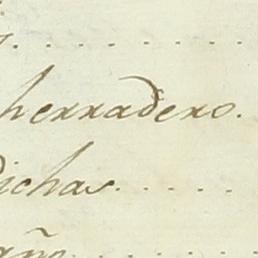 herradero.
Dichas.....
año.......